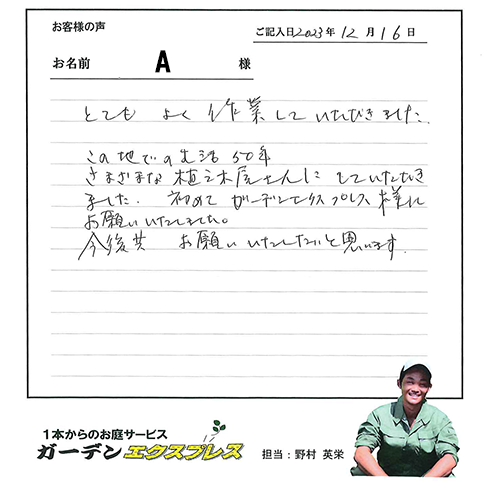 お客様の声
ご記入日2023年12月16日
お名前 A 様
とても よく 作業していただきました。
この地での生活50年
さまざまな植木屋さんに していただき
ました。初めて ガーデンエクスプレス様に
お願いいたしました。
今後共 お願いいたしたいと思います。
1本からのお庭サービス
ガーデンエクスプレス
担当：野村 英栄